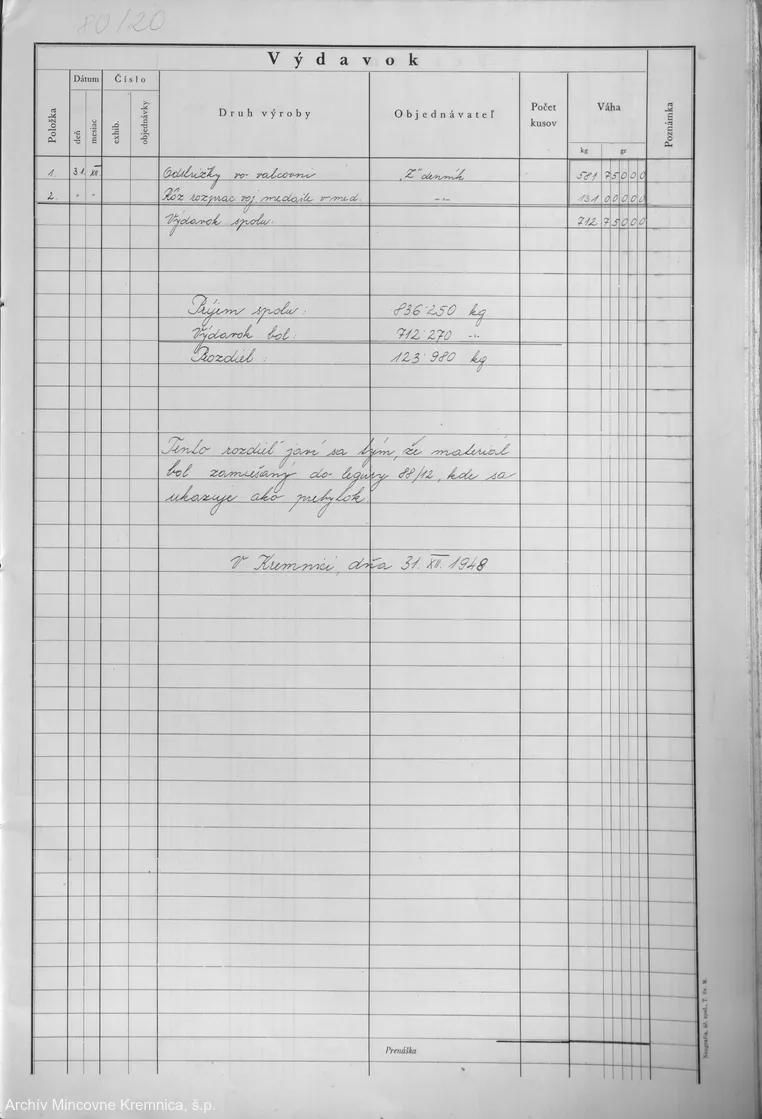 80/20
Výdavok
Položka
Dátum
deň
mesiac
Číslo
exhib.
objednávky
Druh výroby
Objednávateľ
Počet kusov
Váha
kg gr
Poznámka
1. 31. XII. Odstrižky vo valcovni "Z" denník 581 75000
2. " " Rôz rozprac voj medaile v med. -"- 131 00000
Výdavok spolu: 712 75000
Príjem spolu: 836·250 kg
Výdavok bol: 712·270 -"-
Rozdiel: 123·980 kg
Tento rozdiel javí sa tým, že materiál
bol zamiešaný do legúry 88/12, kde sa
ukazuje ako prebytok.
V Kremnici, dňa 31. XII. 1948
Prenáška
Neografia, úč. spol., T. Sv. M.
Archív Mincovne Kremnica, š.p.